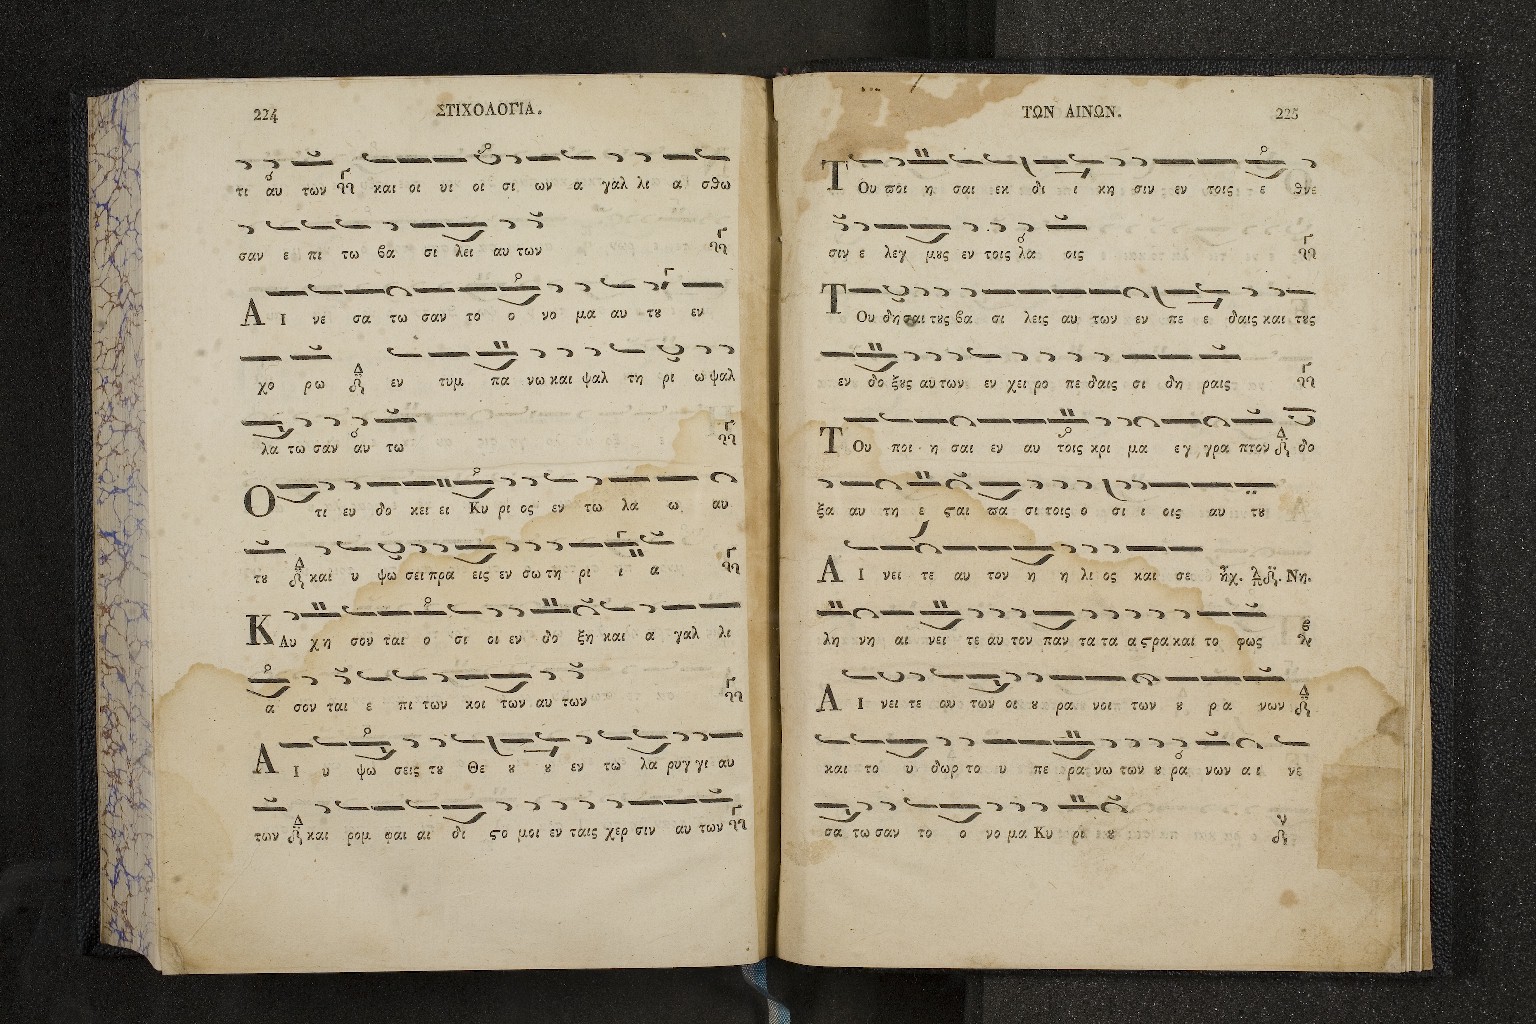 224
ΣΤΙΧΟΛΟΓΙΑ.
τι αυ των και οι υι οι σι ων α γαλ λι α σθω
σαν ε πι τω βα σι λει αυ των
Α Ι νε σα τω σαν το ο νο μα αυ τȣ εν
χο ρω εν τυμ πα νω και ψαλ τη ρι ω ψαλ
λα τω σαν αυ τω
Ο τι ευ δο κει ει Κυ ρι ος εν τω λα ω αυ
τȣ και υ ψω σει πρα εις εν σω τη ρι ι α
Κ Αυ χη σον ται ο σι οι εν δο ξη και α γαλ λι
α σον ται ε πι των κοι των αυ των
Α Ι υ ψω σεις τȣ Θε ȣ ȣ εν τω λα ρυγ γι αυ
των και ρομ φαι αι δι ϛο μοι εν ταις χερ σιν αυ των
ΤΩΝ ΑΙΝΩΝ.
225
Τ Ου ποι η σαι εκ δι ι κη σιν εν τοις ε θνε
σιν ε λεγ μȣς εν τοις λα οις
Τ Ου δη σαι τȣς βα σι λεις αυ των εν πε ε δαις και τȣς
εν δο ξȣς αυ των εν χει ρο πε δαις σι δη ραις
Τ Ου ποι η σαι εν αυ τοις κρι μα εγ γρα πτον δο
ξα αυ τη ε ϛαι πα σι τοις ο σι ι οις αυ τȣ
Α Ι νει τε αυ τον η η λι ος και σε ἦχ. Νη.
λη νη αι νει τε αυ τον παν τα τα α ϛρα και το φως
Α Ι νει τε αυ τον οι ȣ ρα νοι των ȣ ρα νων
και το υ δωρ το υ πε ρα νω των ȣ ρα νων αι νε
σα τω σαν το ο νο μα Κυ ρι ȣ